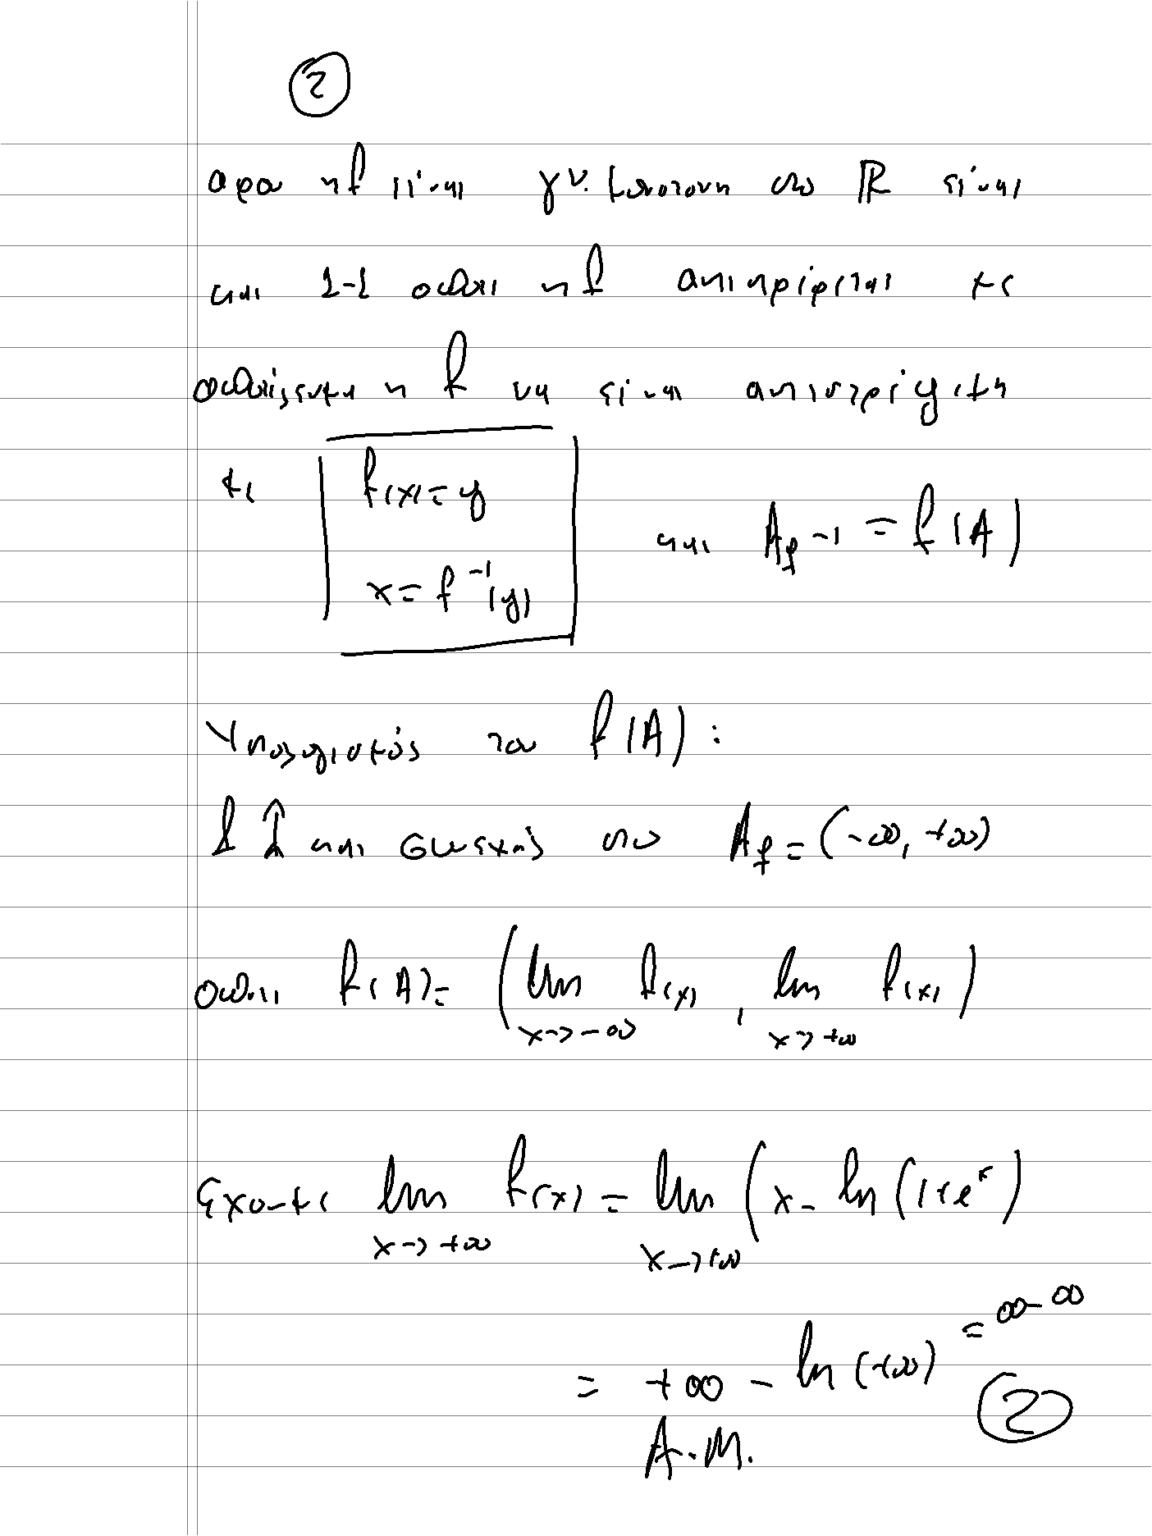 2
αρα η f είναι γν. μονοτονη στο R είναι
και 1-1 οποτε η f αντιστρέφεται με
η f να είναι αντιστρέψιμη
με f(x)=y
x=f⁻¹(y)
και A_f⁻¹ = f(A)
Υπολογισμός του f(A):
f ↑ και συνεχής στο A_f=(-∞,+∞)
οποτε f(A)= (lim x→-∞ f(x), lim x→+∞ f(x))
Εχουμε lim x→+∞ f(x) = lim x→+∞ (x-ln(1+e^x)
= +∞ - ln(+∞) = ∞-∞
Α.Μ.
2